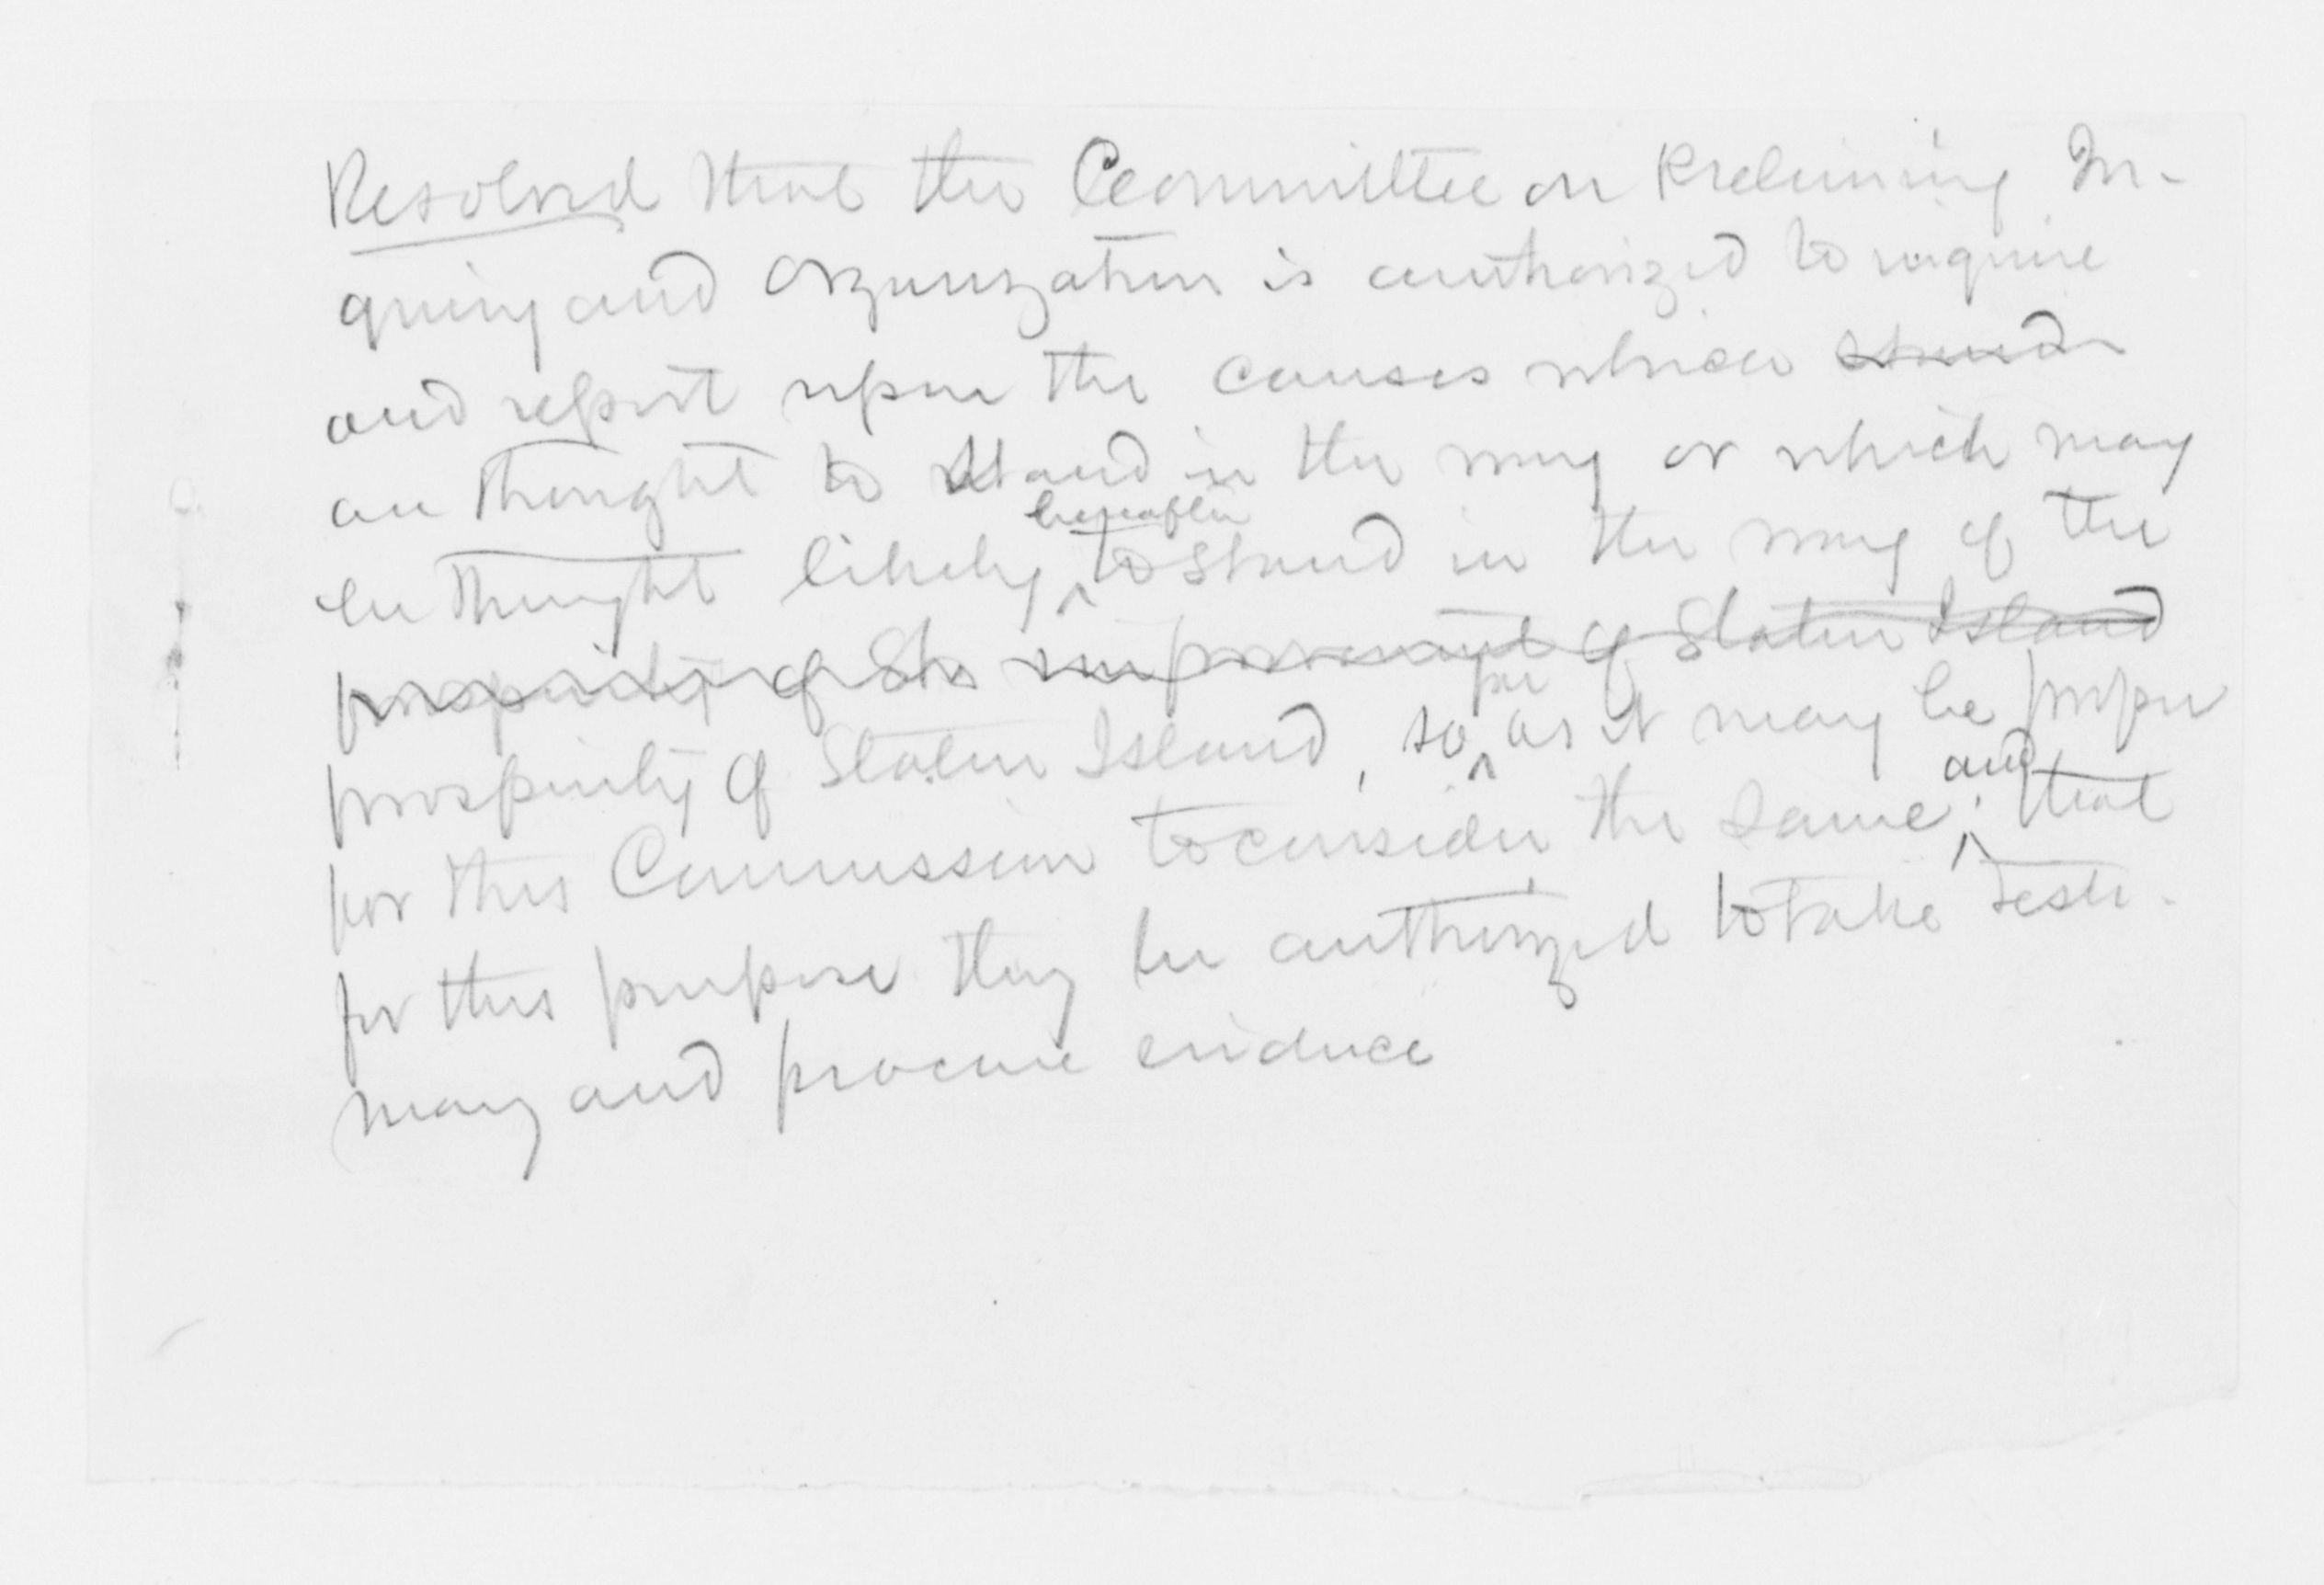 Resolved that the Committee on Preliminary In-
quiry and Organization is authorized to inquire
and report upon the causes which stand
are thought to stand in the way or which may
hereafter
be thought likely to stand in the way of the
prosperity of Sta improvement of Staten Island
far
prosperity of Staten Island, so as it may be proper
and
for this Commission to consider the same; that
for this purpose they be authorized to take testi-
mony and procure evidence